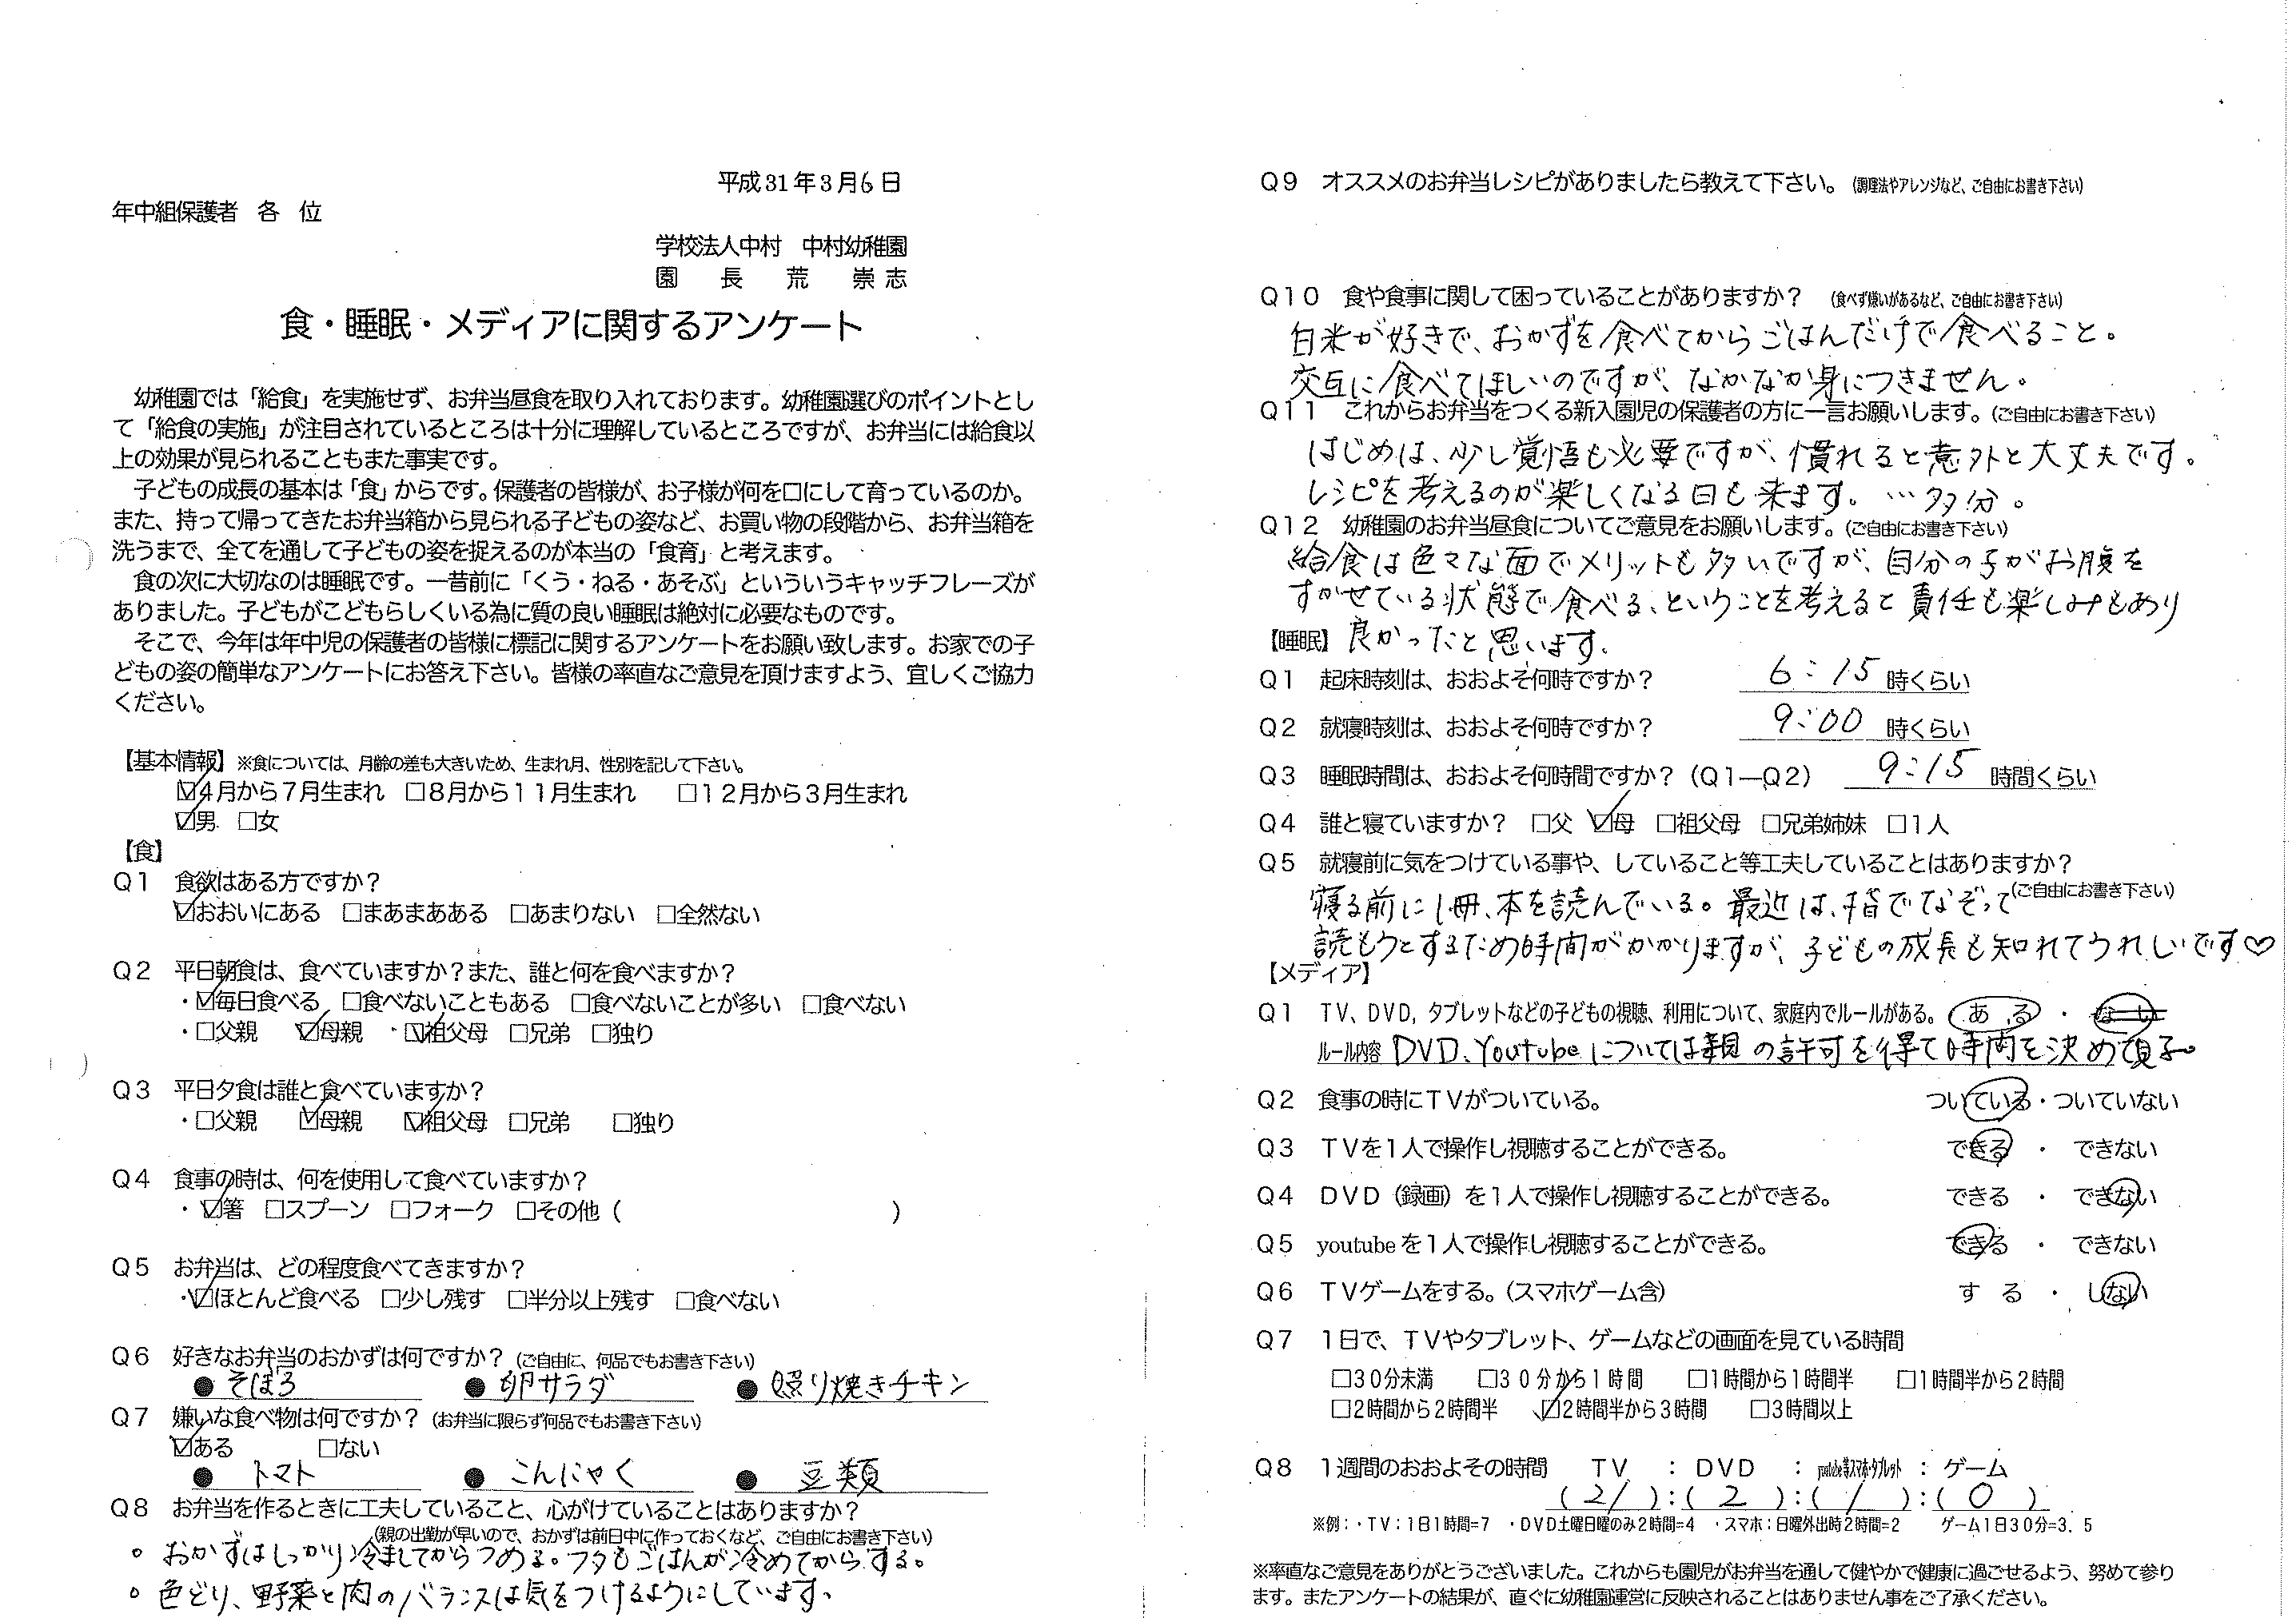 平成31年3月6日
年中組保護者　各　位
学校法人中村　中村幼稚園
園　長　荒　崇志
食・睡眠・メディアに関するアンケート
幼稚園では「給食」を実施せず、お弁当昼食を取り入れております。幼稚園選びのポイントとし
て「給食の実施」が注目されているところは十分に理解しているところですが、お弁当には給食以
上の効果が見られることもまた事実です。
子どもの成長の基本は「食」からです。保護者の皆様が、お子様が何を口にして育っているのか。
また、持って帰ってきたお弁当箱から見られる子どもの姿など、お買い物の段階から、お弁当箱を
洗うまで、全てを通して子どもの姿を捉えるのが本当の「食育」と考えます。
食の次に大切なのは睡眠です。一昔前に「くう・ねる・あそぶ」といういうキャッチフレーズが
ありました。子どもがこどもらしくいる為に質の良い睡眠は絶対に必要なものです。
そこで、今年は年中児の保護者の皆様に標記に関するアンケートをお願い致します。お家での子
どもの姿の簡単なアンケートにお答え下さい。皆様の率直なご意見を頂けますよう、宜しくご協力
ください。
【基本情報】※食については、月齢の差も大きいため、生まれ月、性別を記して下さい。
☑4月から7月生まれ　□8月から11月生まれ　□12月から3月生まれ
☑男　□女
【食】
Q1　食欲はある方ですか？
☑おおいにある　□まあまあある　□あまりない　□全然ない
Q2　平日朝食は、食べていますか？また、誰と何を食べますか？
・☑毎日食べる　□食べないこともある　□食べないことが多い　□食べない
・□父親　☑母親　・☑祖父母　□兄弟　□独り
Q3　平日夕食は誰と食べていますか？
・□父親　☑母親　☑祖父母　□兄弟　□独り
Q4　食事の時は、何を使用して食べていますか？
・☑箸　□スプーン　□フォーク　□その他（　　　）
Q5　お弁当は、どの程度食べてきますか？
・☑ほとんど食べる　□少し残す　□半分以上残す　□食べない
Q6　好きなお弁当のおかずは何ですか？（ご自由に、何品でもお書き下さい）
●そぼろ　●卵サラダ　●照り焼きチキン
Q7　嫌いな食べ物は何ですか？（お弁当に限らず何品でもお書き下さい）
☑ある　□ない
●トマト　●こんにゃく　●豆類
Q8　お弁当を作るときに工夫していること、心がけていることはありますか？
（親の出勤が早いので、おかずは前日中に作っておくなど、ご自由にお書き下さい）
○おかずはしっかり冷ましてからつめる。フタもごはんが冷めてからする。
○色どり、野菜と肉のバランスは気をつけるようにしています。
Q9　オススメのお弁当レシピがありましたら教えて下さい。（調理法やアレンジなど、ご自由にお書き下さい）
Q10　食や食事に関して困っていることがありますか？（食べず嫌いがあるなど、ご自由にお書き下さい）
白米が好きで、おかずを食べてからごはんだけで食べること。
交互に食べてほしいのですが、なかなか身につきません。
Q11　これからお弁当をつくる新入園児の保護者の方に一言お願いします。（ご自由にお書き下さい）
はじめは、少し覚悟も必要ですが、慣れると意外と大丈夫です。
レシピを考えるのが楽しくなる日も来ます。…多分。
Q12　幼稚園のお弁当昼食についてご意見をお願いします。（ご自由にお書き下さい）
給食は色々な面でメリットも多いですが、自分の子がお腹を
すかせている状態で食べる、ということを考えると責任も楽しみもあり
【睡眠】良かったと思います。
Q1　起床時刻は、おおよそ何時ですか？　6:15時くらい
Q2　就寝時刻は、おおよそ何時ですか？　9:00時くらい
Q3　睡眠時間は、おおよそ何時間ですか？（Q1―Q2）　9:15時間くらい
Q4　誰と寝ていますか？　□父　☑母　□祖父母　□兄弟姉妹　□1人
Q5　就寝前に気をつけている事や、していること等工夫していることはありますか？
（ご自由にお書き下さい）
寝る前に1冊、本を読んでいる。最近は、指でなぞって
読もうとするため時間がかかりますが、子どもの成長も知れてうれしいです♡
【メディア】
Q1　TV、DVD，タブレットなどの子どもの視聴、利用について、家庭内でルールがある。　ある・ない
ルール内容　DVD、Youtubeについては親の許可を得て時間を決めて見る。
Q2　食事の時にTVがついている。　ついている・ついていない
Q3　TVを1人で操作し視聴することができる。　できる　・　できない
Q4　DVD（録画）を1人で操作し視聴することができる。　できる　・　できない
Q5　youtubeを1人で操作し視聴することができる。　できる　・　できない
Q6　TVゲームをする。（スマホゲーム含）　する　・　しない
Q7　1日で、TVやタブレット、ゲームなどの画面を見ている時間
□30分未満　□30分から1時間　□1時間から1時間半　□1時間半から2時間
□2時間から2時間半　☑2時間半から3時間　□3時間以上
Q8　1週間のおおよその時間　TV　：　DVD　：　youtube等スマホ・タブレット　：　ゲーム
（21）：（2）：（1）：（0）
※例：・TV：1日1時間=7　・DVD土曜日曜のみ2時間=4　・スマホ：日曜外出時2時間=2　ゲーム1日30分=3.5
※率直なご意見をありがとうございました。これからも園児がお弁当を通して健やかで健康に過ごせるよう、努めて参り
ます。またアンケートの結果が、直ぐに幼稚園運営に反映されることはありません事をご了承ください。